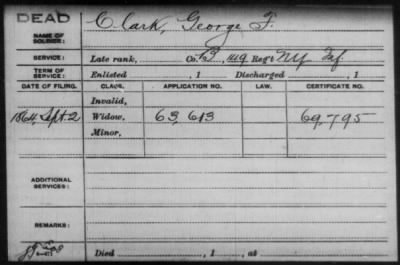 DEAD
Clark, George F.
NAME OF SOLDIER:
SERVICE: Late rank, Co. B, 149 Reg't NY Inf
TERM OF SERVICE: Enlisted , 1 Discharged , 1
DATE OF FILING. CLASS. APPLICATION NO. LAW. CERTIFICATE NO.
Invalid,
1864, Sept. 2 Widow, 63,613 69,795
Minor,
ADDITIONAL SERVICES:
REMARKS:
Died , 1 , at